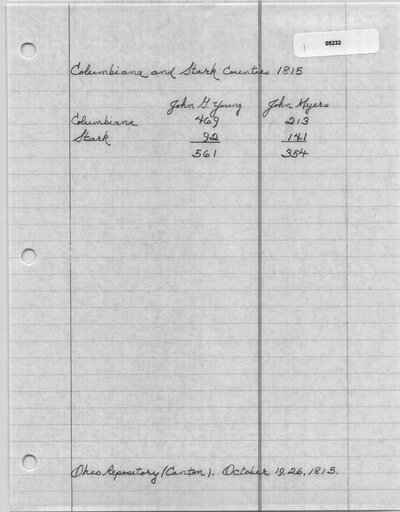 05232
Columbiana and Stark Counties 1815
John G. Young John Myers
Columbiana 469 213
Stark 92 141
561 354
Ohio Repository (Canton). October 19, 26, 1815.